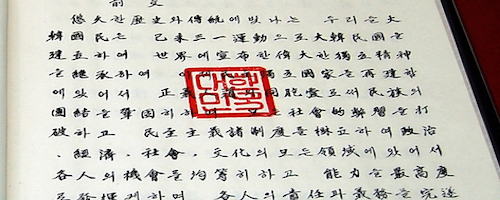 前文
悠久한 歷史와 傳統에 빛나는 우리들 大
韓國民은 己未三一運動으로 大韓民國을
建立하여 世界에 宣布한 偉大한 獨立精神
을 繼承하여 獨立國家를 再建함
에 있어서 正義 同胞愛로써 民族의
團結을 鞏固히 하며 모든 社會的弊習을 打
破하고 民主主義諸制度를 樹立하여 政治
, 經濟, 社會, 文化의 모든 領域에 있어서
各人의 機會를 均等히 하고 能力을 最高度
로 發揮케 하며 各人의 責任과 義務를 完遂